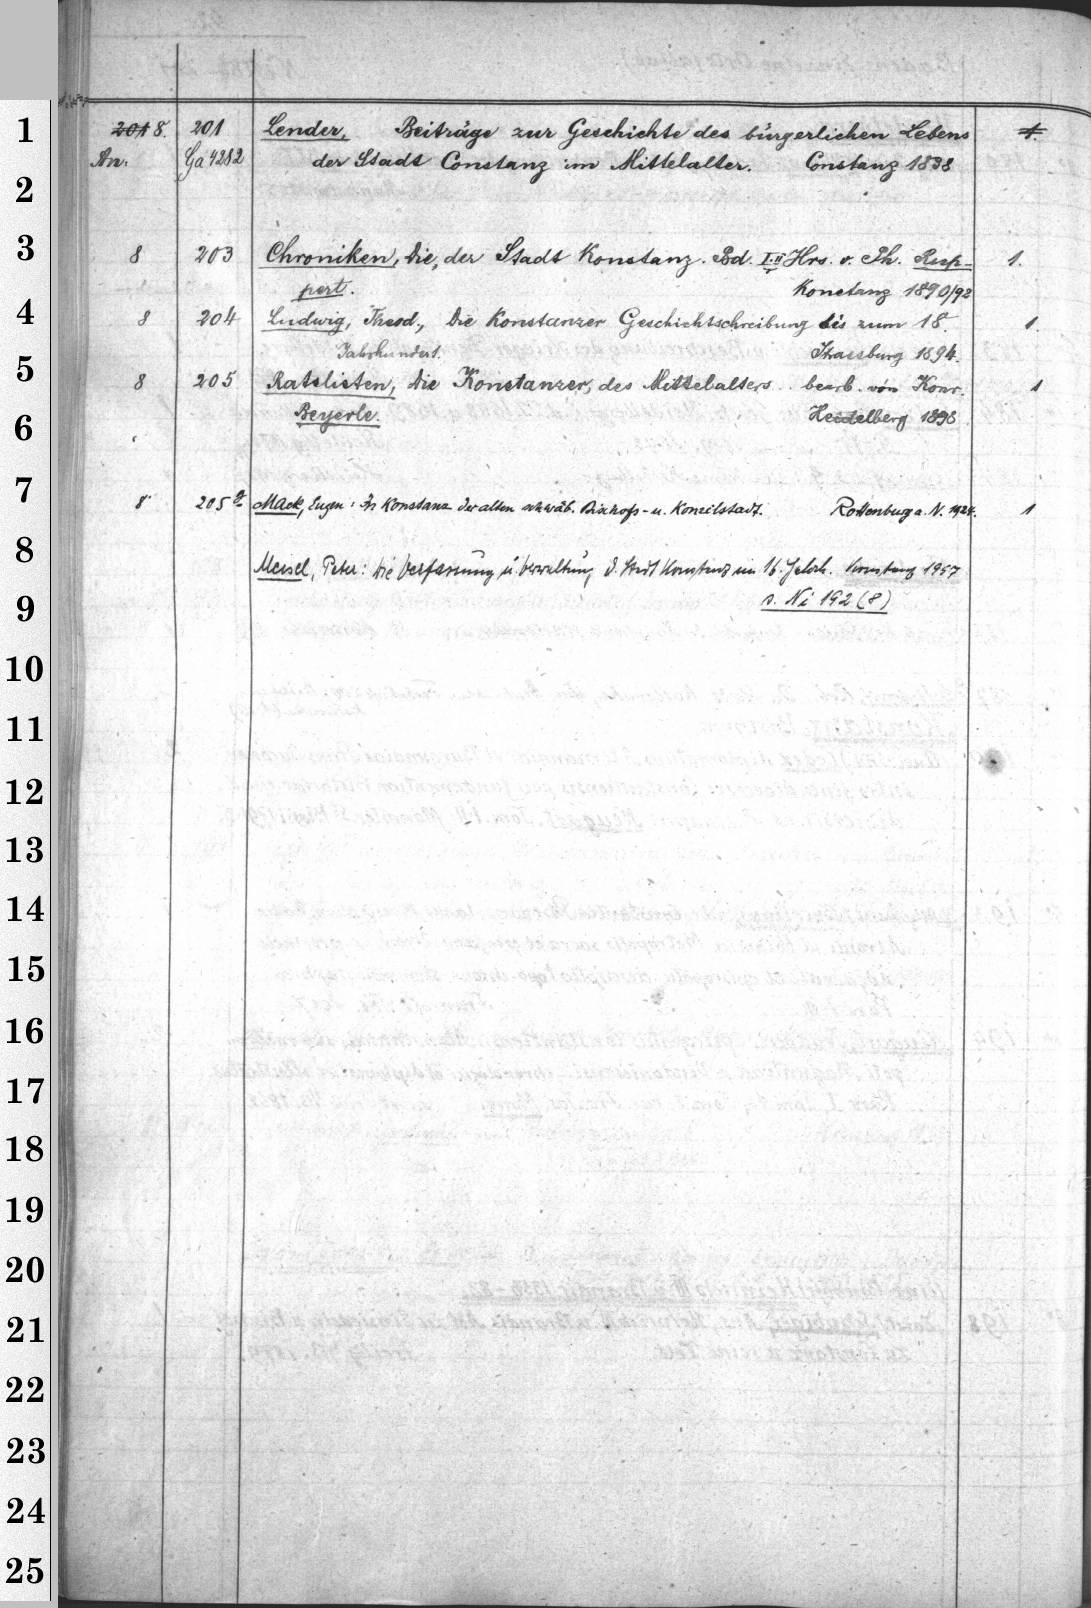 1
2
3
4
5
6
7
8
9
10
11
12
13
14
15
16
17
18
19
20
21
22
23
24
25
201 8. 201 Lender, Beiträge zur Geschichte des bürgerlichen Lebens 1.
An. Ga 4282 der Stadt Constanz im Mittelalter. Constanz 1838
8 203 Chroniken, Die, der Stadt Konstanz. Bd. I.II Hrs. v. Ph. Rup- 1.
pert. Konstanz 1890/92
8 204 Ludwig, Theod., Die Konstanzer Geschichtschreibung bis zum 18. 1.
Jahrhundert. Strassburg 1894.
8 205 Ratslisten, Die Konstanzer, des Mittelalters. bearb. von Konr. 1
Beyerle. Heidelberg 1898
8 205a Mack, Eugen: In Konstanz der alten schwäb. Bischofs- u. Konzilstadt. Rottenburg a. N. 1924. 1
Meisel, Peter: Die Verfassung u. Verwaltung d. Stadt Konstanz im 16. Jahrh. Konstanz 1957
s. Ni 192 (8)